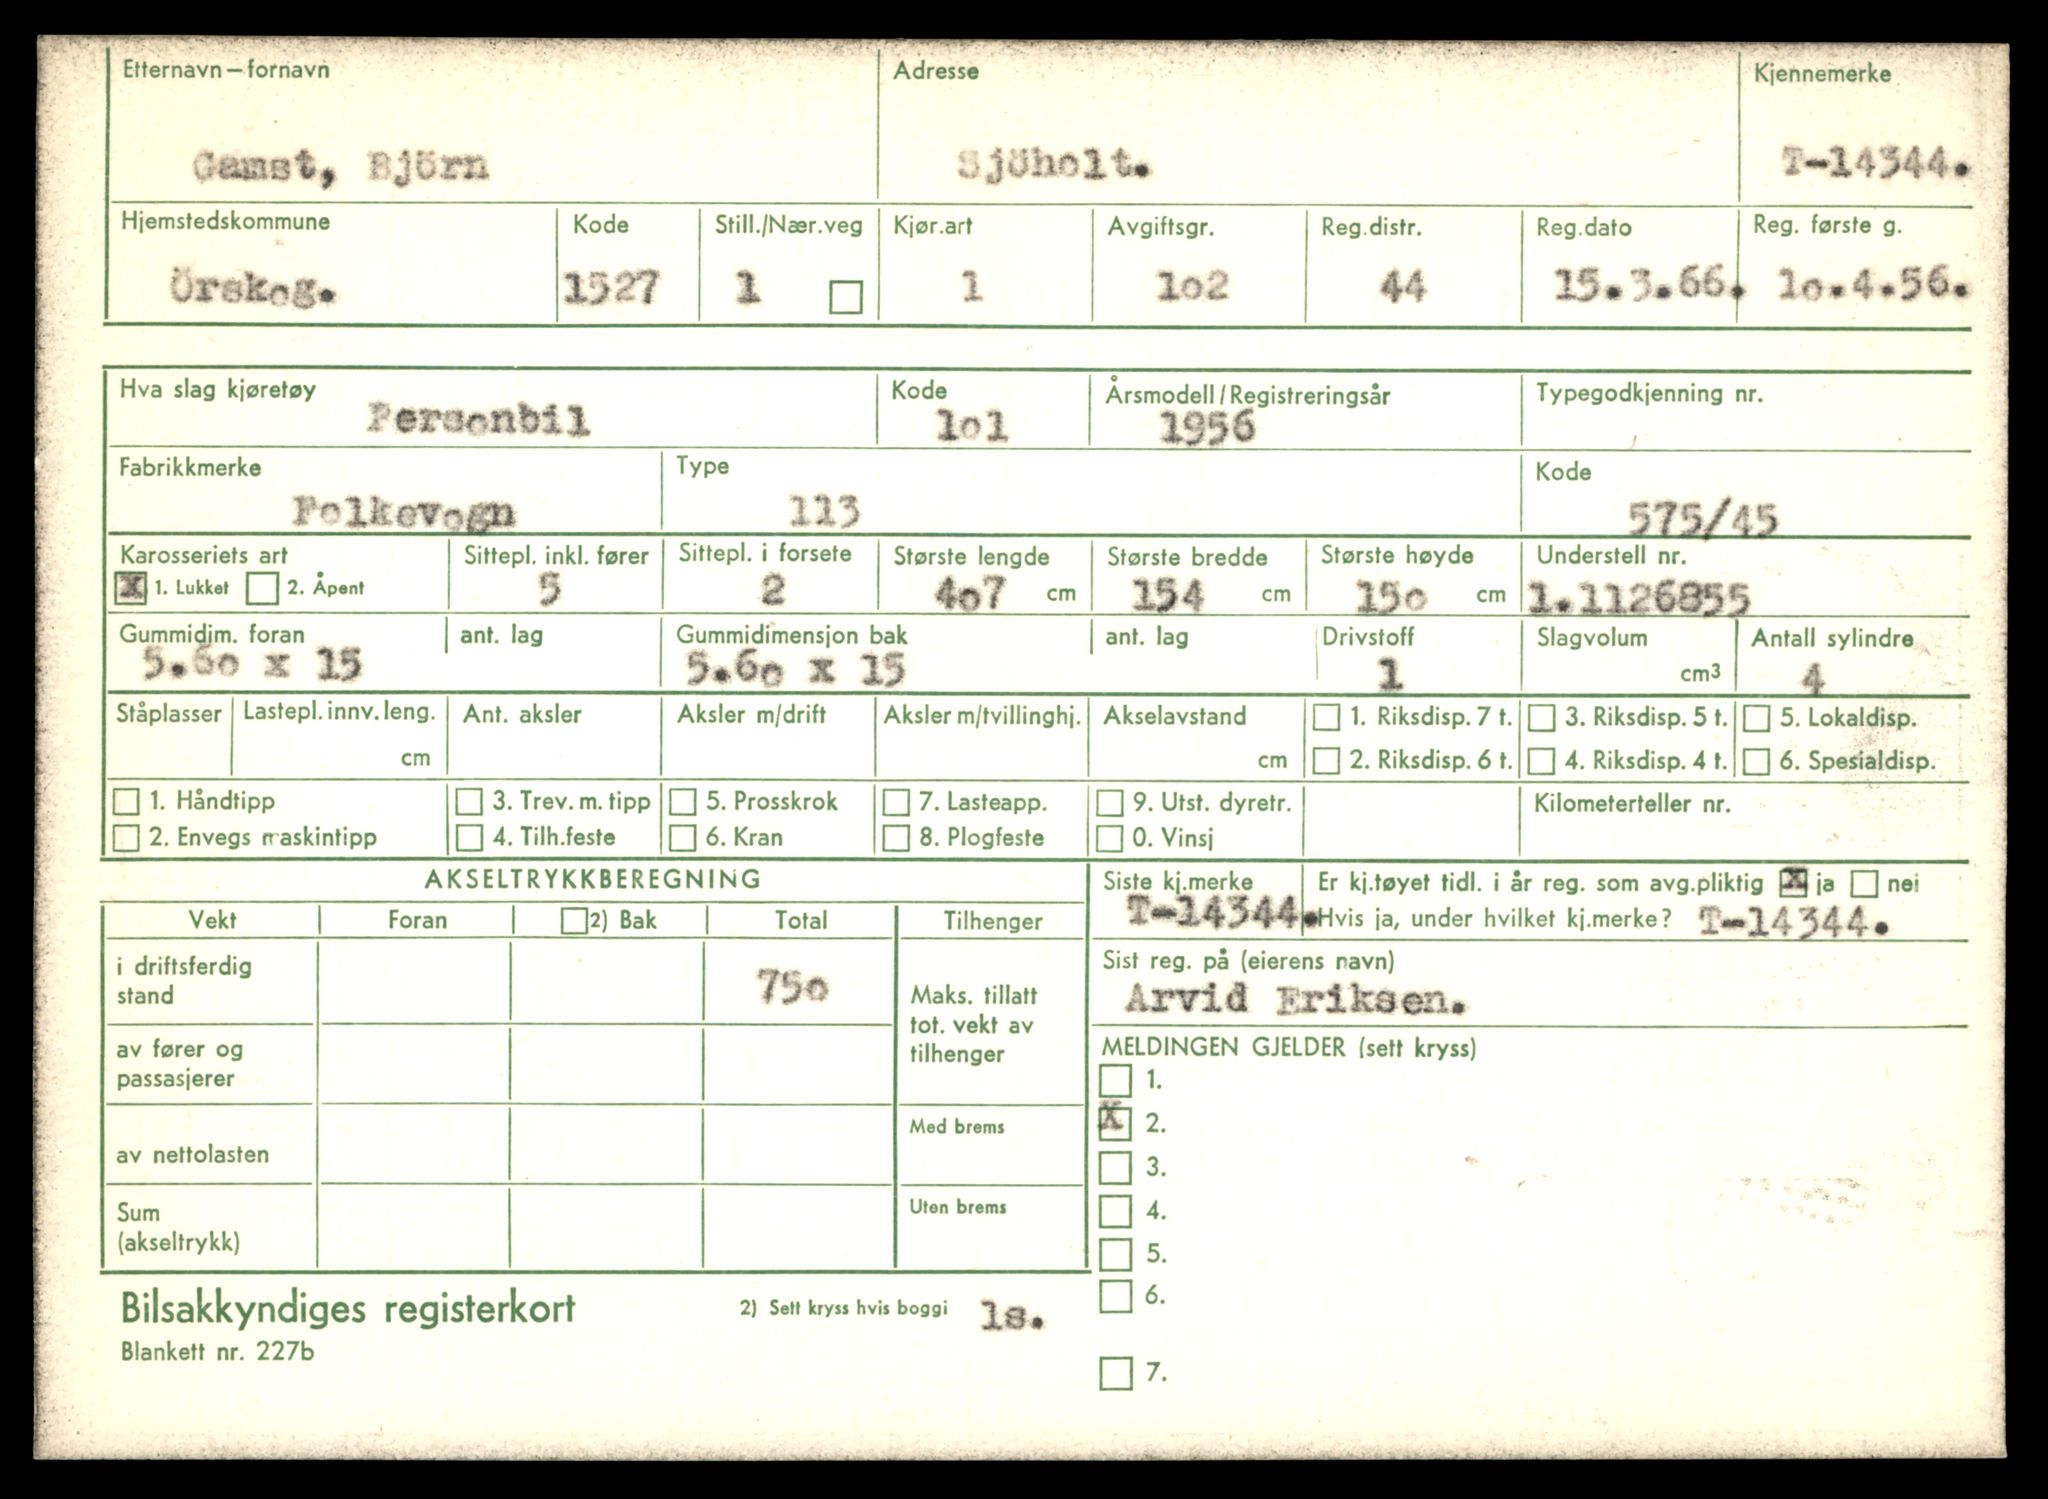 Etternavn—fornavn Adresse Kjennemerke
Gamst, Björn Sjöholt. T-14344.
Hjemstedskommune Kode Still./Nær.veg Kjør.art Avgiftsgr. Reg.distr. Reg.dato Reg. første g.
Örskog. 1527 1 1 1o2 44 15.3.66. 1o.4.56.
Hva slag kjøretøy Kode Årsmodell/Registreringsår Typegodkjenning nr.
Personbil 1o1 1956
Fabrikkmerke Type Kode
Folkevogn 113 575/45
Karosseriets art Sittepl. inkl. fører Sittepl. i forsete Største lengde Største bredde Største høyde Understell nr.
X 1. Lukket 2. Åpent 5 2 4o7 cm 154 cm 15o cm 1.1126855
Gummidim. foran ant. lag Gummidimensjon bak ant. lag Drivstoff Slagvolum Antall sylindre
5.6o x 15 5.6o x 15 1 cm3 4
Ståplasser Lastepl. innv. leng. Ant. aksler Aksler m/drift Aksler m/tvillinghj. Akselavstand 1. Riksdisp. 7 t. 3. Riksdisp. 5 t. 5. Lokaldisp.
cm cm 2. Riksdisp. 6 t. 4. Riksdisp. 4 t. 6. Spesialdisp.
1. Håndtipp 3. Trev. m. tipp 5. Prosskrok 7. Lasteapp. 9. Utst. dyretr. Kilometerteller nr.
2. Envegs maskintipp 4. Tilh.feste 6. Kran 8. Plogfeste 0. Vinsj
AKSELTRYKKBEREGNING
Siste kj.merke Er kj.tøyet tidl. i år reg. som avg.pliktig X ja nei
T-14344. Hvis ja, under hvilket kj.merke? T-14344.
Vekt Foran 2) Bak Total Tilhenger
Sist reg. på (eierens navn)
Arvid Eriksen.
i driftsferdig
stand 75o
Maks. tillatt
tot. vekt av
tilhenger
av fører og
passasjerer
Med brems
av nettolasten
Uten brems
Sum
(akseltrykk)
MELDINGEN GJELDER (sett kryss)
1.
X 2.
3.
4.
5.
6.
7.
Bilsakkyndiges registerkort 2) Sett kryss hvis boggi 1s.
Blankett nr. 227b